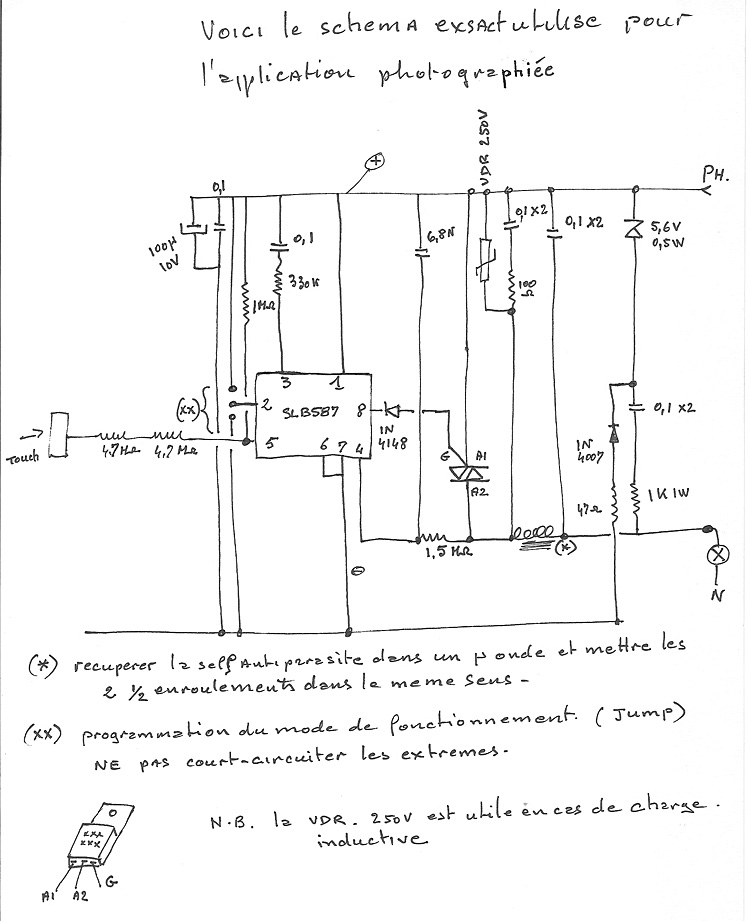 Voici le schema exsact utilise pour
l'application photographiée
VDR 250V
+
PH.
0,1
100µ
10V
0,1
330K
1MΩ
6,8N
0,1 X2
100
Ω
0,1 X2
5,6V
0,5W
(xx)
3
1
2
SLB587
8
5
6 7 4
1N
4148
Touch
4,7MΩ
4,7MΩ
G
A1
A2
1N
4007
0,1 X2
47Ω
1K 1W
1,5 MΩ
(*)
X
N
⊖
(*) recuperer la self Antiparasite dans un µ onde et mettre les
2 ½ enroulements dans le meme sens -
(xx) programmation du mode de fonctionnement. (Jump)
NE pas court-circuiter les extremes.
N.B. la VDR. 250V est utile en cas de charge.
inductive
xxx
xxx
A1 A2 G